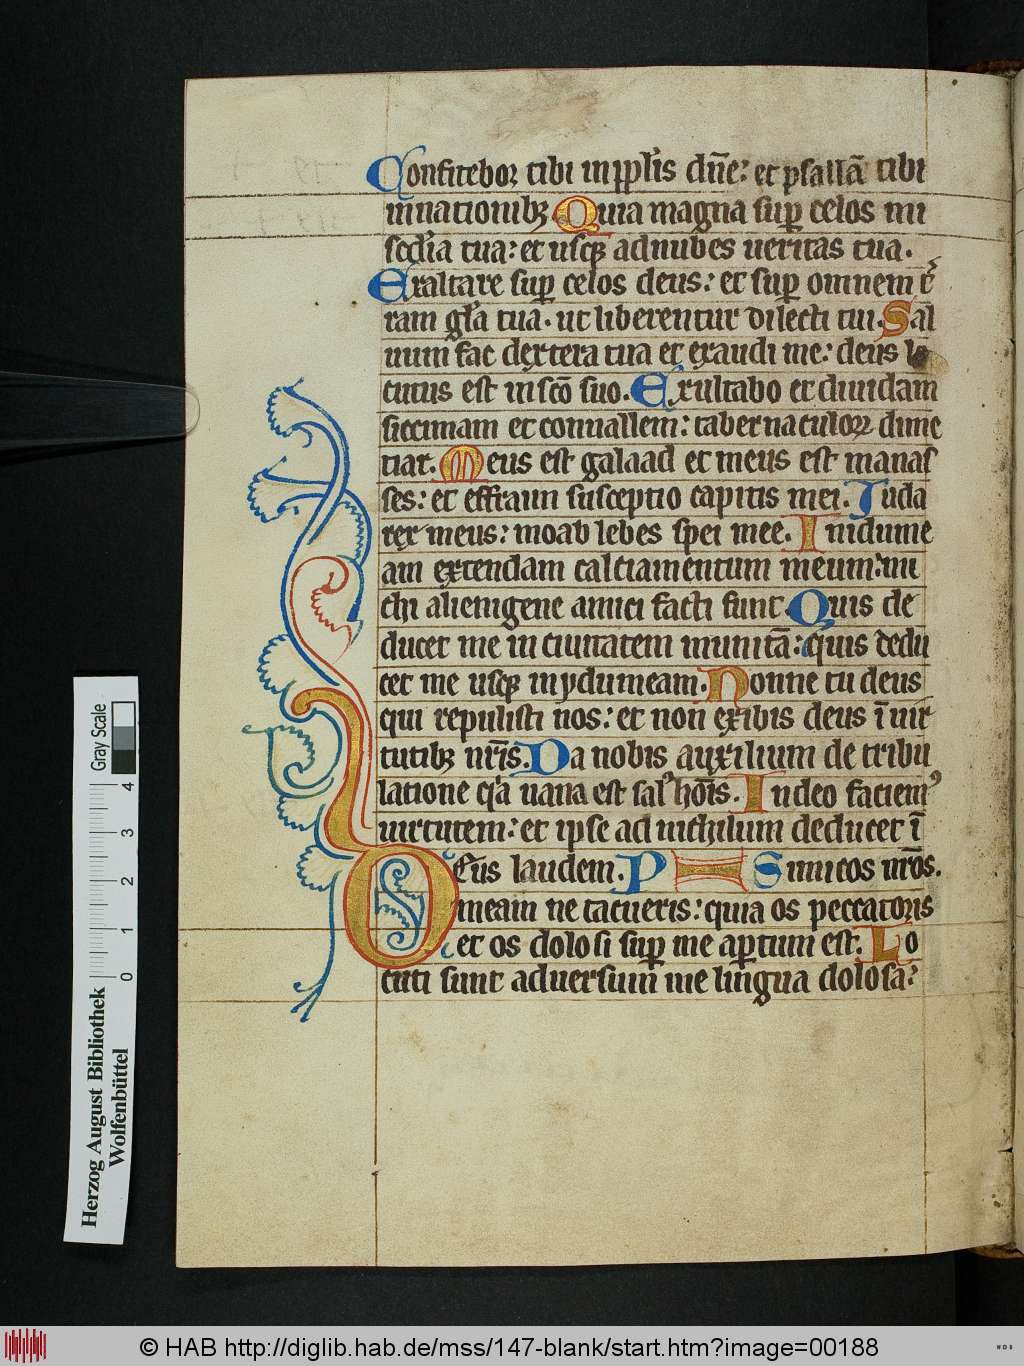 Confitebor tibi in pplis dñe: et psallā tibi
in nationibꝫ Quia magna sup celos mi
scďia tua: et usqꝫ ad nubes ueritas tua.
Exaltare sup celos deus: et sup omnem t̄
ram gľa tua. ut liberentur dilecti tui. Sal
uum fac dextera tua et exaudi me: deus lo
cutus est in sc̄o suo. Exultabo et diuidam
siccimam et conuallem: tabernaculoꝝ dime
tiar. Meus est galaad et meus est manas
ses: et effraim susceptio capitis mei. Iuda
rex meus: moab lebes spei mee. In idume
am extendam calciamentum meum: mi
chi alienigene amici facti sunt. Quis de
ducet me in ciuitatem munitā: quis dedu
cet me usqꝫ in ydumeam. Nonne tu deus
qui repulisti nos: et non exibis deus ī uir
tutibꝫ nr̄is. Da nobis auxilium de tribu
latione q̇a uana est salꝰ hoīs. In deo faciemꝰ
uirtutem: et ipse ad nichilum deducet ī
imicos nr̄os.
Deus laudem. P S
meam ne tacueris: quia os peccatoris
et os dolosi sup me aptum est. Lo
cuti sunt aduersum me lingua dolosa:
Herzog August Bibliothek
Wolfenbüttel
0 1 2 3 4
Gray Scale
© HAB http://diglib.hab.de/mss/147-blank/start.htm?image=00188